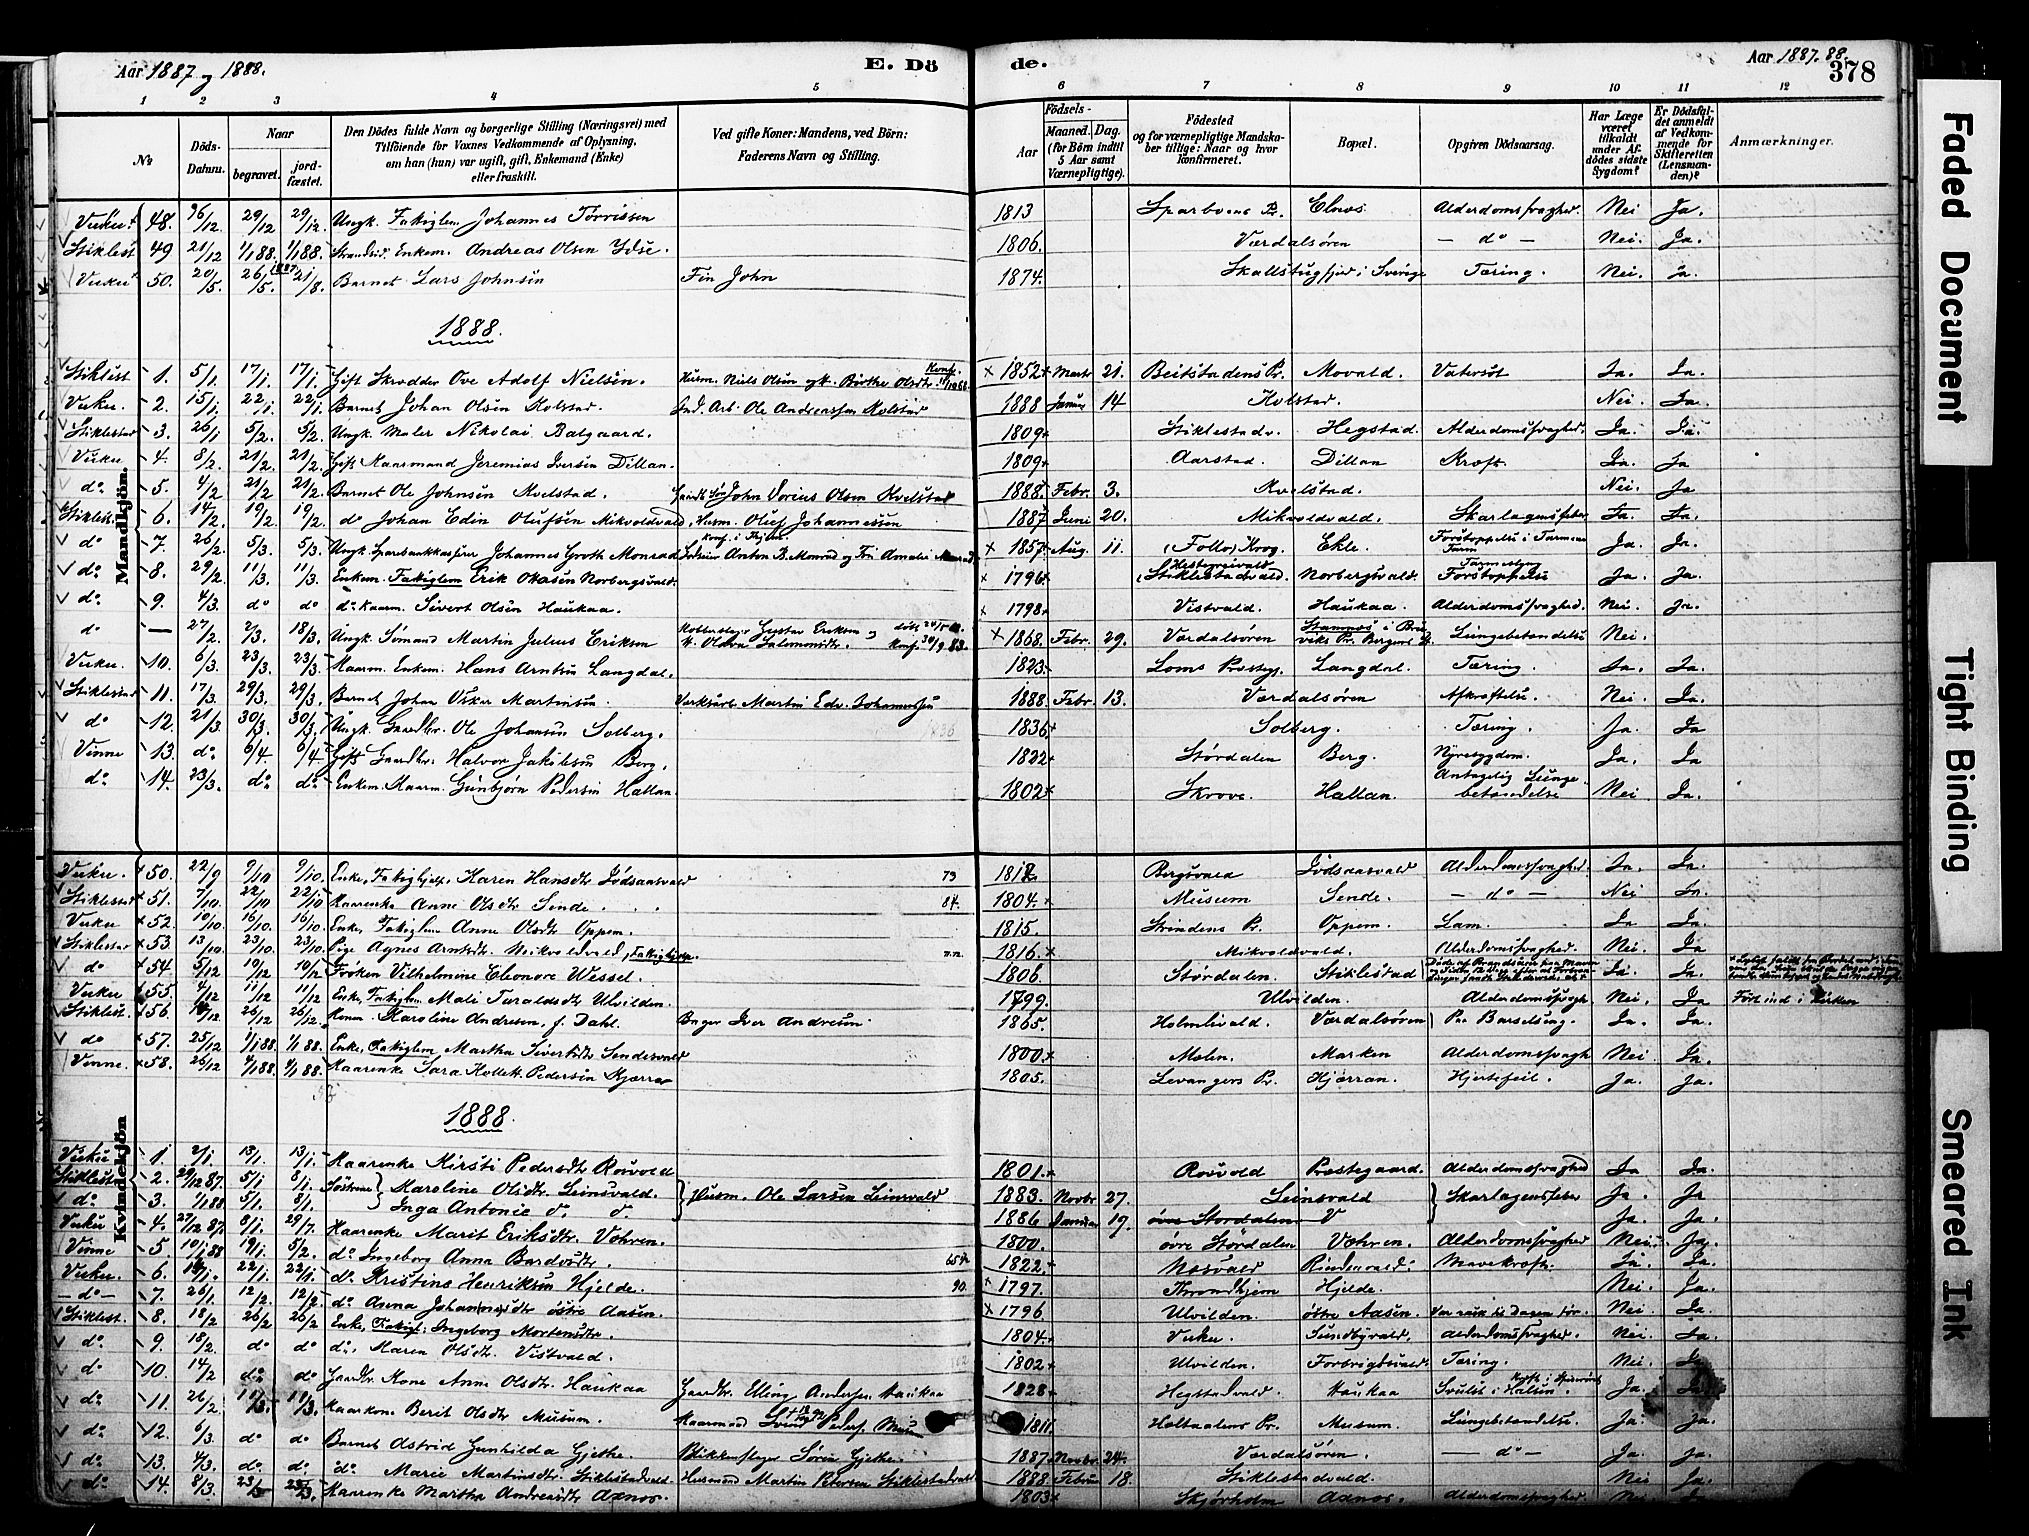 Aar 1887 og 1888. E. Dö
de. Aar 1887. 88.
378
1 2 3 4 5 6 7 8 9 10 11 12
No
Döds-Datum.
Naar
begravet.
jord-fæstet.
Den Dödes fulde Navn og borgerlige Stilling (Næringsvei) med
Tilföiende for Voxnes Vedkommende af Oplysning,
om han (hun) var ugift, gift, Enkemand (Enke)
eller fraskilt.
Ved gifte Koner: Mandens, ved Börn:
Faderens Navn og Stilling.
Födsels-
Aar
Maaned. Dag.
(for Börn indtil
5 Aar samt
Værnepligtige).
Födested
og for værnepligtige Mandska-
ber tillige: Naar og hvor
konfirmeret.
Bopæl.
Opgiven Dödsaarsag.
Har Læge
været
tilkaldt
under Af-
dödes sidste
Sygdom?
Er Dödsfal-
det anmeldt
af Vedkom-
mende for
Skifteretten
(Lensman-
den)?
Anmærkninger.
Mandkjön.
48. 29/12 29/12 Ungk. Fattiglem Johannes Tørrissen 1813 Sparboens Pr. Alderdomssvaghed. Nei Ja.
Stiklest 49 21/12 1/1 88. 1/1 88. Enkem. Andreas Olsen Ydse. 1806. Værdalsøren — do — Nei. Ja.
50. 20/5. 26/5. 21/8. Barnet Lars Johnsen Fin John 1874. i Sverige Tæring. Nei. Ja.
1888.
Stiklest 1. 5/1. 17/1. 17/1. Gift Skrædder Ove Adolf Nielsen. Husm. Niels Olsen og k. Birthe Olsdtr. 1852 Marts 21. Beitstadens Pr. Movald. Vatersot Ja. Ja.
Vuku. 2. 15/1. 22/1. 22/1. Barnet Johan Olsen Kolstad. Ind. Arb. Ole Andreassen Kolstad 1888 Januar 14 Kolstad. Nei. Ja.
Stiklestad 3. 26/1 5/2. 5/2. Ungk. Maler Nikolai Balgaard. 1809 Stiklestadv. Hegstad. Alderdomssvaghed. Ja. Ja.
Vuku 4. 8/2. 21/2. 21/2. Gift Kaarmand Jeremias Iversen Dillan. 1809 Aarstad. Dillan Kræft. Ja. Ja
do. 5. 4/2. 21/2 21/2. Barnet Ole Johnsen Kvelstad. John Dorius Olsen Kvelstad 1888. Febr. 3. Kvelstad. Nei. Ja
Stiklest. 6. 14/2. 19/2 19/2. do Johan Edin Olufsen Mikvoldvald, Husm. Oluf Johannessen 1887 Juni 20. Mikvoldvald. Skarlagensfeber Ja. Ja.
do. 7. 26/2. 5/3. 5/3. Ungk. Sparbankkasserer Johannes Groth Monrad Anton B. Monrad og Fru Amalie Monrad 1857 Aug. 11. (Follo) Krog. Ekle. Forstoppelse i Tarmene Ja. Ja.
do. 8. 29/2. 11/3. 11/3. Enkem. Fattiglem Erik Olasen Norbergsvald. 1796 Stiklestadvald. Norbergsvald. Forstoppelse Ja. Ja.
do. 9. 4/3. do do do. Kaarm. Sivert Olsen Haukaa. 1798 Vistvald. Haukaa. Alderdomssvaghed. Nei. Ja.
do — 27/2. 2/3. 18/3. Ungk. Sømand Martin Julius Eriksen Gustav Eriksen og k. Olava Salomonsdtr. 1868. Febr. 29. Værdalsøren Lungebetændelse Nei.
Vuku. 10. 6/3. 23/3. 23/3. Kaarm. Enkem. Hans Arntsen Langdal. 1823 Loms Præstegj. Langdal. Tæring. Ja. Ja.
Stiklestad 11. 17/3. 29/3. 29/3. Barnet Johan Oskar Martinsen. Martin Edv. Johannessen 1888. Febr. 13. Værdalsøren Afkræftelse. Nei. Ja.
do. 12. 21/3. 30/3. 30/3. Ungk. Gaardbr. Ole Johansen Solberg. 1836 Solberg. Tæring. Ja. Ja
Vinne 13. do. 6/4. 6/4. Gift Gaardbr. Halvor Jakobsen Berg. 1822 Størdalen Berg. Nyresygdom. Ja. Ja
do. 14. 23/3. do. do. Enkem. Kaarm. Gunbjørn Pedersen Hallan. 1802 Skrove. Hallan. Antagelig Lunge-
betændelse Nei. Ja.
Kvindekjön
Vuku. 50. 22/9 9/10 9/10. Enke, Karen Hansdtr. Jødsaasvald 73 Bergsvald Jødsaasvald Alderdomssvaghed. Ja. Ja.
Stiklestad 51. 7/10. 22/10 22/10 Kaarenke Anne Olsdtr. Sende. 84. 1804. Musum Sende. — do — Nei Ja.
Vuku 52. 10/10. 16/10. 16/10. Enke, Fattiglem Anne Olsdtr. Oppem. 1815. Strindens Pr. Oppem. Lam. Ja Ja
Stiklestad 53. 13/10. 23/10. 23/10. Pige Agnes Arntsdtr. Mikvoldvald, 1816. Mikvoldvald. Alderdomssvaghed. Nei. Ja
do 54. 5/12 19/12 19/12 Frøken Vilhelmine Eleonore Wessel. 1806. Størdalen. Stiklestad Ja. Ja.
Vuku 55. 4/12 11/12 11/12 Enke, Fattiglem Mali Taraldsdtr. Ulvilden. 1799. Ulvilden. Alderdomssvagh. Nei. Ja Ført ind i Kirken
Stiklest. 56. 26/12 26/12. Karoline Andresen, f. Dahl. Bager Iver Andresen. 1865. Holmlivald. Værdalsøren Barselseng. Ja. Ja.
do 57. 25/12 1/1 88. 1/1 88. Enke, Fattiglem Martha Sivertsdtr. Sendesvald 1800 Molen. Marken Alderdomssvagh Nei. Ja.
Vinne. 58. 26/12 4/1 88. 4/1 88. Kaarenke Sara Kollett. Pedersen Kjærran 1805. Levangers Pr. Hjørran. Hjertefeil. Ja. Ja.
1888.
Vuku 1. 2/1. 13/1. 13/1. Kaarenke Kirsti Pedersdtr. Rosvold 1801. Rosvold Præstegaard. Alderdomssvaghed Ja Ja.
Stiklest 2. 29/12 87. 5/1 8/1. Søstrene Karoline Olsdtr. Leinsvald. Husm. Ole Larsen Leinsvald 1883. Novbr. 27. Leinsvald Skarlagensfeber Ja. Ja
do. 3. 1/1 88 5/1. 8/1. Inga Antonie 1886 Januar 19. Ja. Ja.
Vuku 4. 27/12 87. 8/1. 29/7. Kaarenke Marit Eriksdtr. Vohren. 1800. øvre Størdalen Vohren. Alderdomssvaghed Nei. Ja.
Vinne 5. 10/1 88 19/1. 5/2. do. Ingeborg Anna Bardosdtr. 1822 Næsvald Rindsemvald. Mavekræft. Ja. Ja.
Vuku. 6. 22/1. 22/1. do. Kristine Henriksen Hjelde. 90. 1797. Throndhjem Hjelde. Nei. Ja.
— do — 7. 26/1. 12/2. 12/2. do. Anna Johannesdtr. østre Aasen. 1796 Ulvilden. østre Aasen. Nei. Ja.
Stiklest. 8. 18/2. 26/2 26/2 Enke, Fattigl. Ingeborg Mortensdtr. 1804 Vuku. Sundbyvald. Alderdomssvaghed. Nei. Ja.
do. 9. 18/2 do do do. Maren Olsdtr. Vistvald. 1802 Ulvilden. Forbrigdsvald. Tæring. Nei.
do 10. 14/2 do. do Gaardbr. Kone Anne Olsdtr. Haukaa Gaardbr. Elling Andersen Haukaa 1828 Hegstadvald. Haukaa Svulst i Halsen. Ja.
do. 11. 26/2. 11/3. 11/3. Kaarkone Berit Olsdtr. Musum. Kaarmand Svend Peders. 1811. Holtaalens Pr. Musum. Lungebetændelse. Ja. Ja.
do. 12. 6/3. do do Barnet Astrid Gunhilda Gjethe. Blikkenslager Søren Gjethe. 1887 Novbr. 24. Værdalsøren. — do — Ja. Ja.
do. 13. 4/3. do. do. do. Marie Martinsdtr. Stiklestadvald. Husmand Martin Petersen Stiklestadvald 1888 Februar 18. Stiklestadvald. Nei Ja.
do. 14. 8/3. 23/3 23/3. Kaarenke Martha Andreasdtr. Axnæs. 1803 Skjørholm Axnæs. Alderdomssvaghed Nei
Faded Document
Tight Binding
Smeared Ink